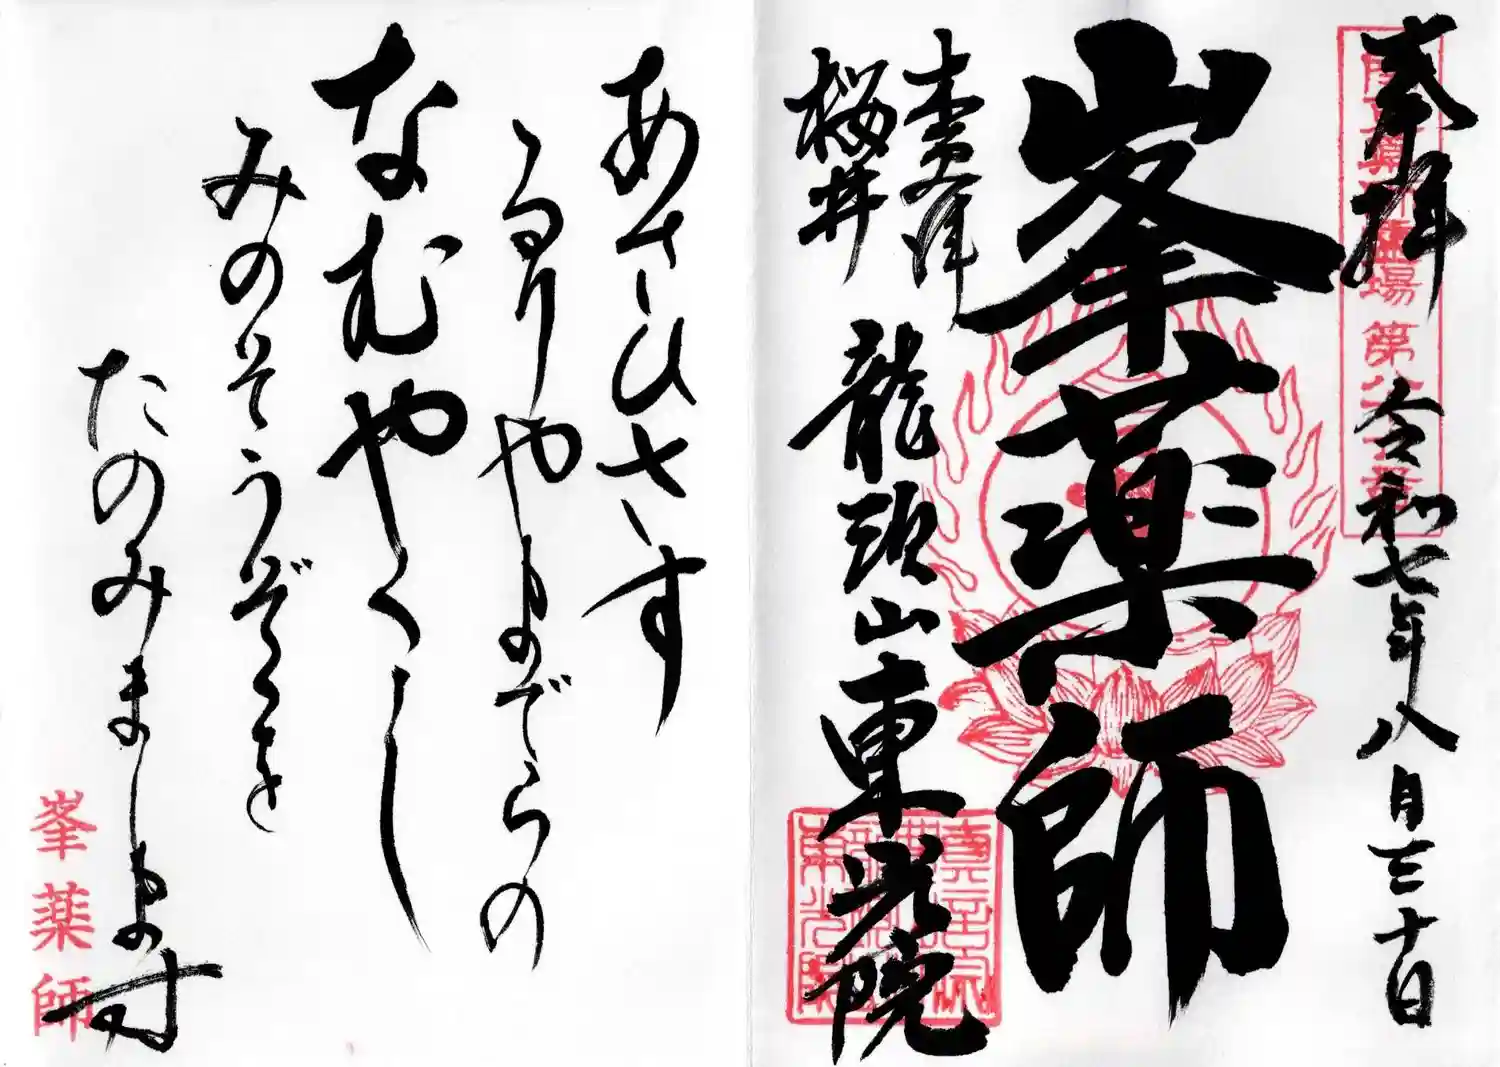 奉拝
令和七年八月三十日
峯薬師
木更津
桜井
龍頭山 東光院
あさひさす
るりやまでらの
なむやくし
みのそうぞくを
たのみまします
峯薬師